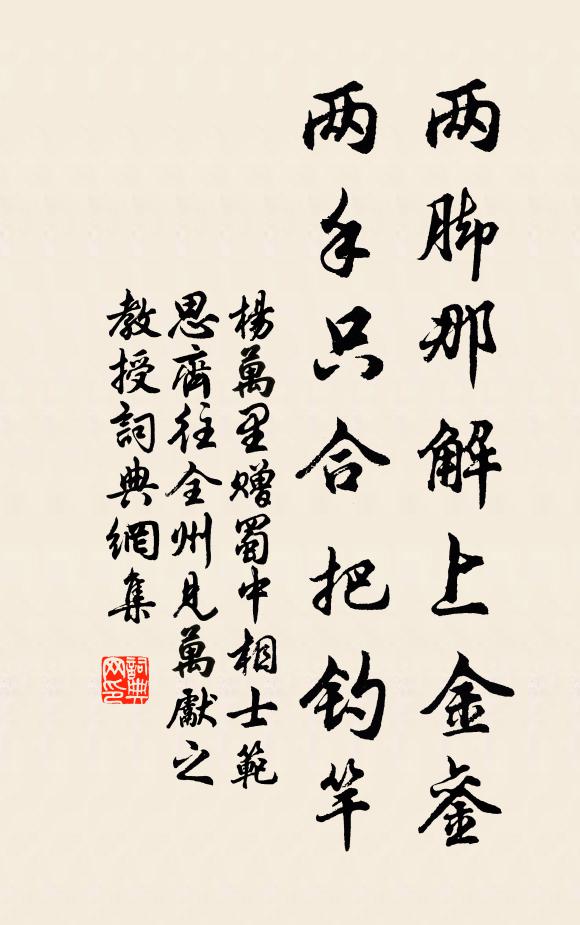 两脚那解上金銮
两手只合把釣竿
楊萬里贈蜀中相士範
思齊往全州見萬獻之
教授詞典網集
詞典网印